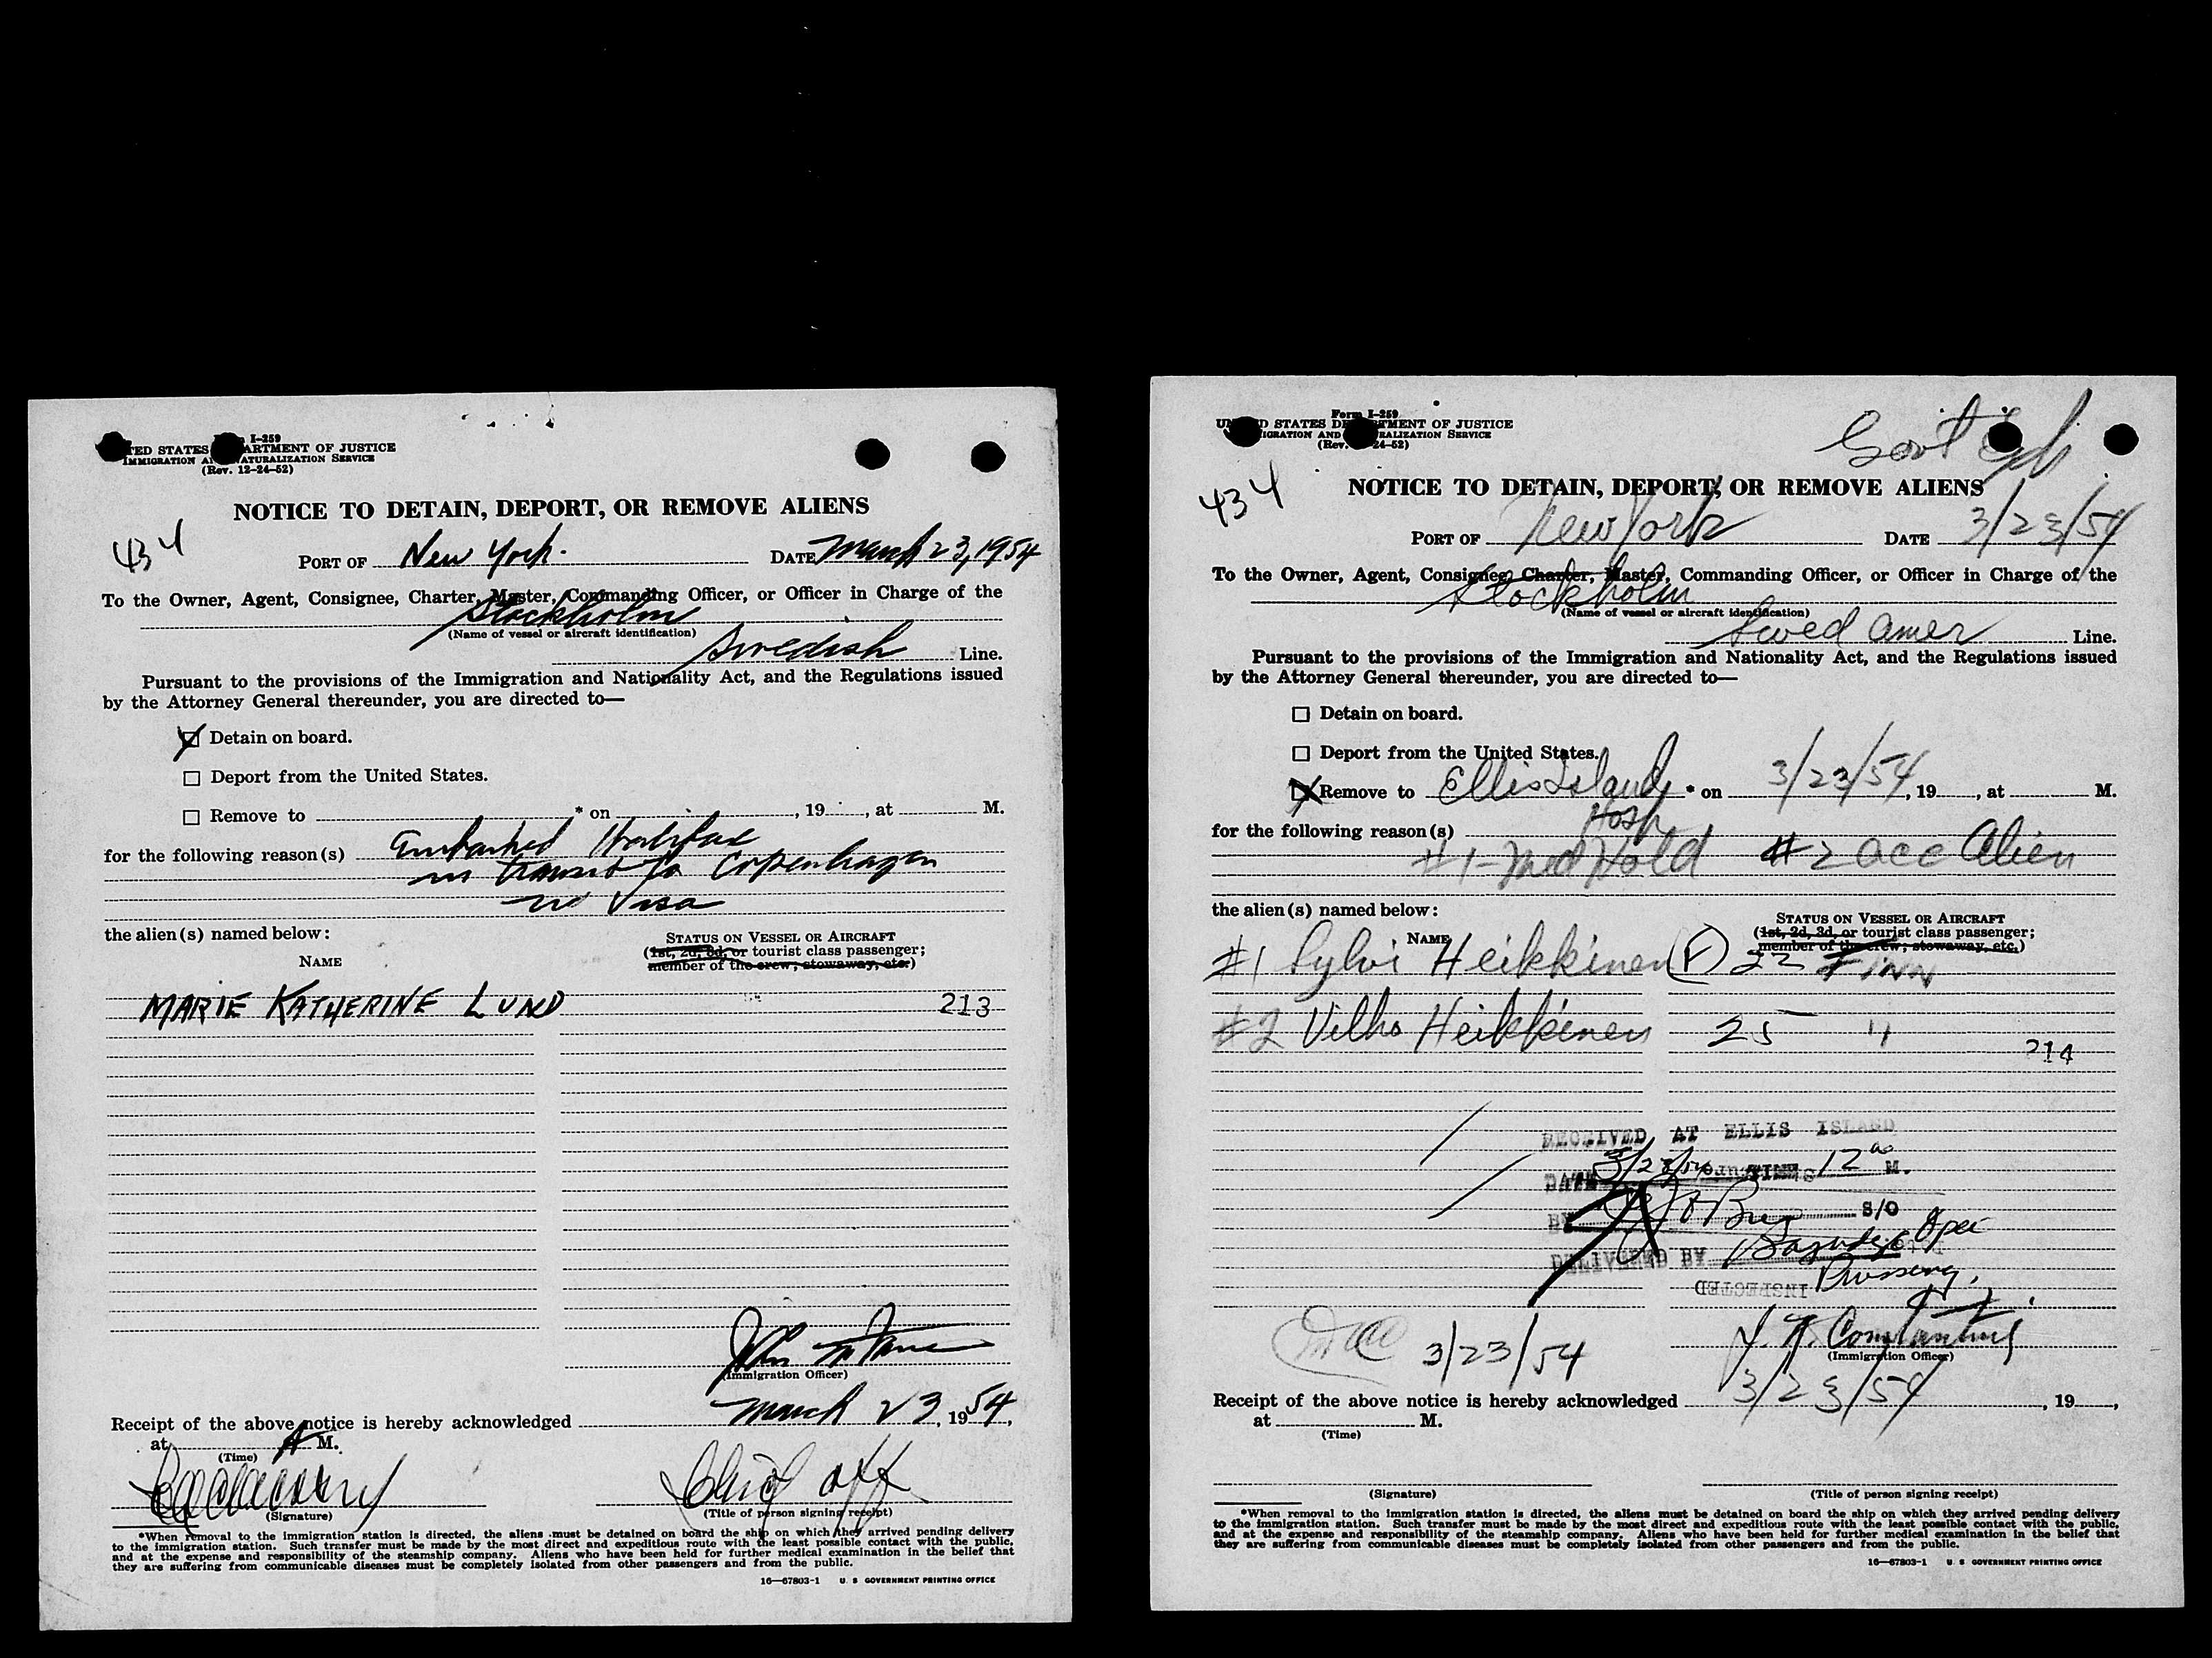 Form I-259
UNITED STATES DEPARTMENT OF JUSTICE
IMMIGRATION AND NATURALIZATION SERVICE
(Rev. 12-24-52)
NOTICE TO DETAIN, DEPORT, OR REMOVE ALIENS
434
PORT OF New York. DATE March 23, 1954
To the Owner, Agent, Consignee, Charter, Master, Commanding Officer, or Officer in Charge of the
Stockholm
(Name of vessel or aircraft identification)
Swedish Line.
Pursuant to the provisions of the Immigration and Nationality Act, and the Regulations issued
by the Attorney General thereunder, you are directed to—
Detain on board.
Deport from the United States.
Remove to * on , 19 , at M.
for the following reason(s) Embarked Halifax
in transit to Copenhagen
no Visa
the alien(s) named below:
STATUS ON VESSEL OR AIRCRAFT
(1st, 2d, 3d, or tourist class passenger;
member of the crew; stowaway, etc.)
NAME
MARIE KATHERINE LUND 213
John
(Immigration Officer)
Receipt of the above notice is hereby acknowledged March 23, 1954,
at A M.
(Time)
Chief off
(Signature) (Title of person signing receipt)
*When removal to the immigration station is directed, the aliens must be detained on board the ship on which they arrived pending delivery
to the immigration station. Such transfer must be made by the most direct and expeditious route with the least possible contact with the public,
and at the expense and responsibility of the steamship company. Aliens who have been held for further medical examination in the belief that
they are suffering from communicable diseases must be completely isolated from other passengers and from the public.
16—67803-1 U. S. GOVERNMENT PRINTING OFFICE
Form I-259
UNITED STATES DEPARTMENT OF JUSTICE
IMMIGRATION AND NATURALIZATION SERVICE
(Rev. 12-24-52)
Govt
434
NOTICE TO DETAIN, DEPORT, OR REMOVE ALIENS
PORT OF New York DATE 3/23/54
To the Owner, Agent, Consignee, Charter, Master, Commanding Officer, or Officer in Charge of the
Stockholm
(Name of vessel or aircraft identification)
Swed Amer Line.
Pursuant to the provisions of the Immigration and Nationality Act, and the Regulations issued
by the Attorney General thereunder, you are directed to—
Detain on board.
Deport from the United States.
Remove to Ellis Island * on 3/23/54, 19 , at M.
Hosp
for the following reason(s)
#1-Med Hold #2 acc Alien
the alien(s) named below:
STATUS ON VESSEL OR AIRCRAFT
(1st, 2d, 3d, or tourist class passenger;
member of the crew; stowaway, etc.)
NAME
#1 Sylvi Heikkinen (F) 22 FINN
#2 Vilho Heikkinen 25 "
214
RECEIVED AT ELLIS ISLAND
DATE 3/23/54 TIME 12 00 M.
BY S/O
DELIVERED BY
INSPECTED
3/23/54
(Immigration Officer)
Receipt of the above notice is hereby acknowledged 3/23/54, 19 ,
at M.
(Time)
(Signature) (Title of person signing receipt)
*When removal to the immigration station is directed, the aliens must be detained on board the ship on which they arrived pending delivery
to the immigration station. Such transfer must be made by the most direct and expeditious route with the least possible contact with the public,
and at the expense and responsibility of the steamship company. Aliens who have been held for further medical examination in the belief that
they are suffering from communicable diseases must be completely isolated from other passengers and from the public.
16—67803-1 U. S. GOVERNMENT PRINTING OFFICE